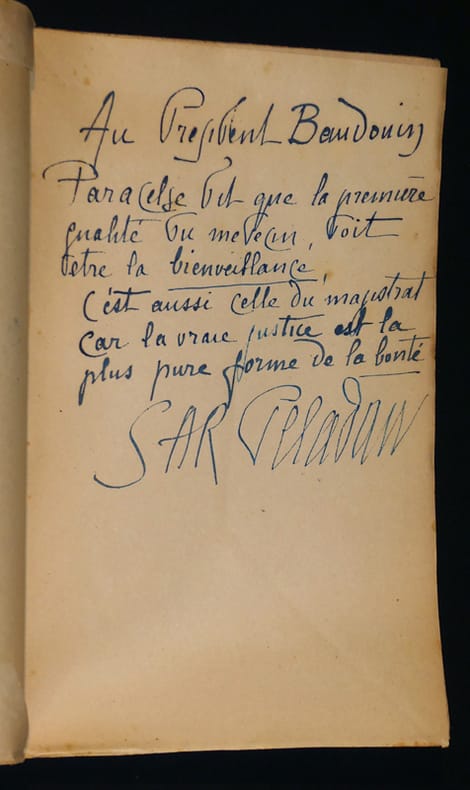 Au President Baudouin
Paracelse dit que la première
qualité du medecin, doit
etre la bienveillance,
c'est aussi celle du magistrat
car la vraie justice est la
plus pure forme de la bonté
SAR Peladan